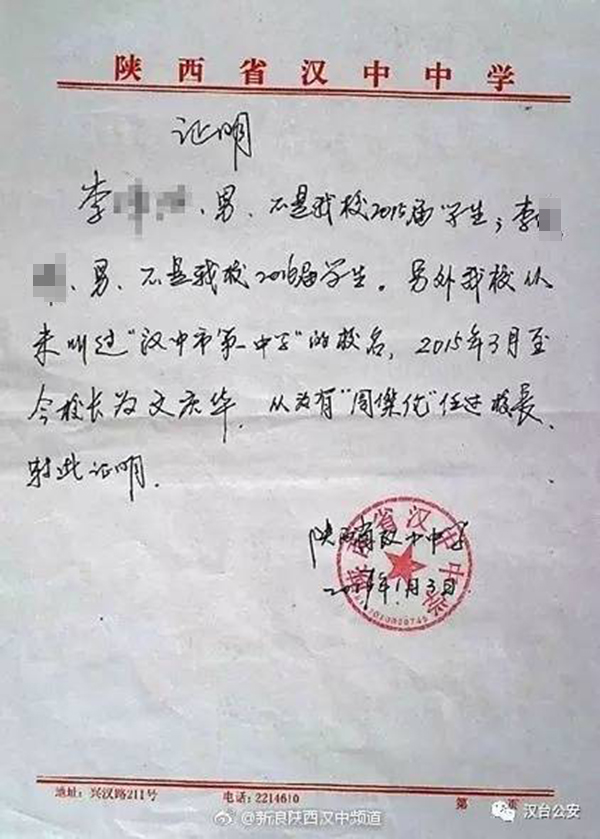 陕西省汉中中学
证明
李 、男、不是我校2015届学生；李
、男、不是我校2016届学生。另外我校从
未叫过“汉中市第一中学”的校名，2015年3月至
今校长为文庆华，从没有“周杰伦”任过校长、
特此证明。
陕西省汉中中学
年1月3日
陕西省汉中中学
地址：兴汉路211号 电话：2214610 第 页
@新浪陕西汉中频道
汉台公安